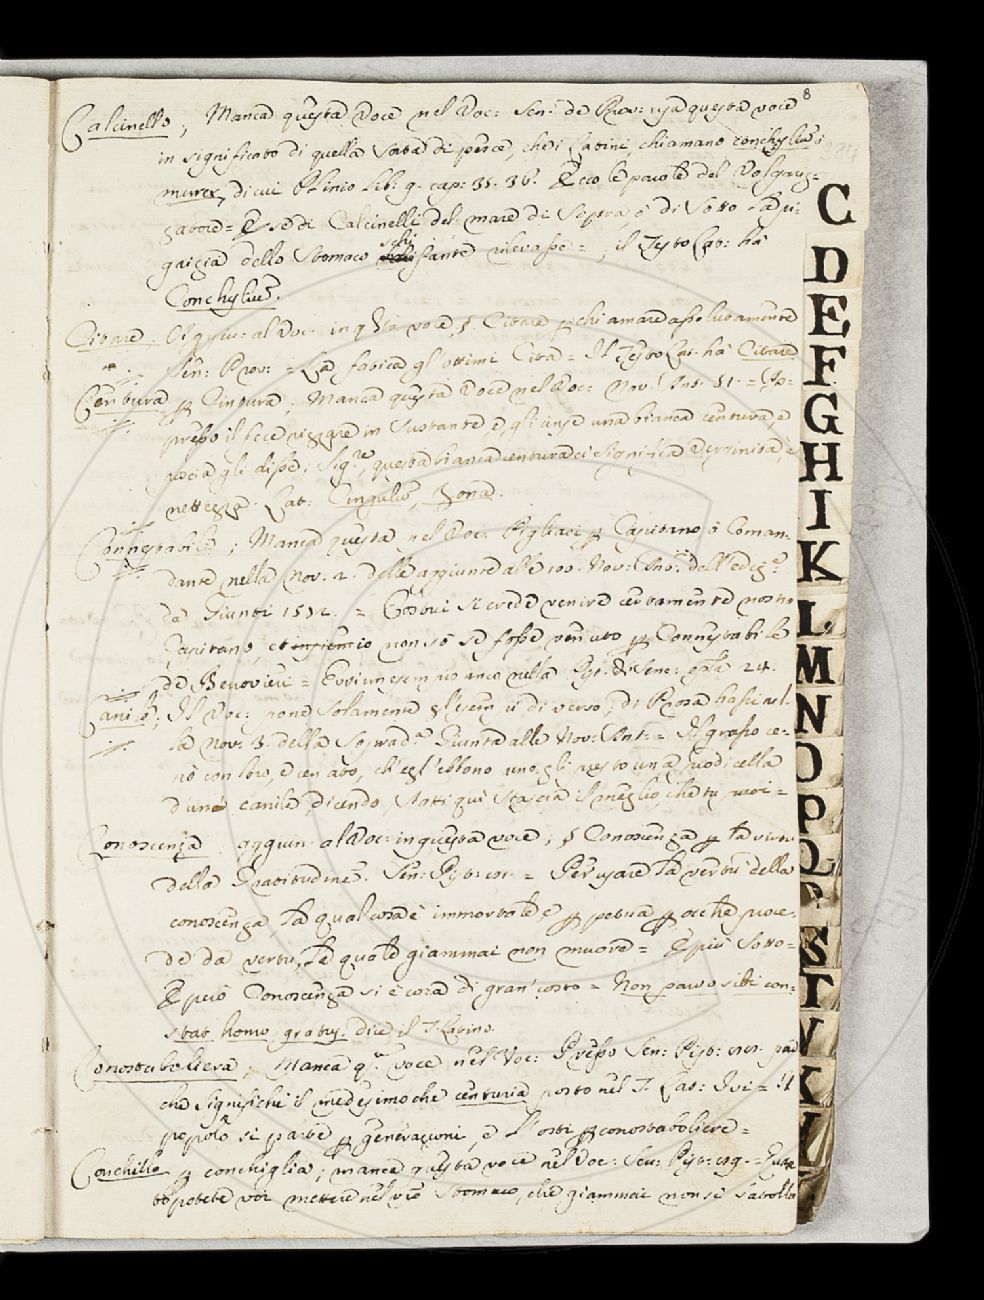 8
Calcinello; Manca questa Voce nel Voc: Sen: de Prov: usa questa voce
in significato di quella sorta di pesce, che i Latini chiamano conchyliũ o
murex, di cui Plinio lib. 9. cap: 35. 36. Ecco le parole del Volgariz=
zatore= E se di Calcinelli del mare di Sopra, o di Sotto la pi=
grizia dello Stomaco schifante rilevosse=; il Testo Lat: ha
Conchyliũ.
Citare; Aggiu: al Voc: in q̃sta voce, §. Citare p chiamare assolutamente
Sen: Prov: = La fatica gl'ottimi Cita = Il Testo Lat: ha Citare
Centura p Cintura; Manca questa Voce nel Voc: Nov: Ant: 51. =
presso il fece rizzare in sustante, e gli cinse una bianca centura, e
poscia gli disse; Sigre, questa bianca centura ci significa Verginità, e
nettezza. Lat: Cinguliũ, Zona.
Connestabile; Manca questa nel Voc: Pigliasi p Capitano ò Coman=
dante nella Nov: 2. delle aggiunte alle 100. Nov: Ant: dell'ediz.e
da Giunti 1572. = Costui si crede venire certamente nostro
Capitano, et non sò se fosse venuto p Connestabile
de = Evvi un esempio anco nella Pist: di Sene: 24.
Canile; Il Voc: pone solamente gl'esem̃ di verso; di Prosa hassi nel=
la Nov: 3. della Soprad.a Giunta alle Nov: Ant: =
nò con loro, e cenato, ch'egl'ebbono uno gli prestò una
d'uno canile, dicendo, statti quì stascia il meglio, che tu puoi=
Conoscenza aggiun: al Voc: in questa voce; § Conoscenza p la virtù
della Gratitudine. Sen: Pist: = Per usare la vertù della
conoscenza, la qual cosa è immortale, e p
de da vertu, le quale giammai non muore= E più Sotto=
E perciò Conoscenza si è cosa di gran costo = Non parvo sibi con=
stat homo gratus. dice il T. Latino.
Conostaboliera; Manca q.a voce nel Voc: Presso Sen: Pist: par
che significhi il medesimo che centuria posto nel T. Lat: Ivi = Il
popolo si parte p generazioni, e l'osti p conostaboliere=
Conchillo p conchiglia; manca questa voce nel Voc: Sen: Pist: =
potete voi mettere nel vr̃o stomaco, che giammai non si satolla
C
D
E
F
G
H
I
K
L
M
N
O
P
Q
R
S
T
V
X